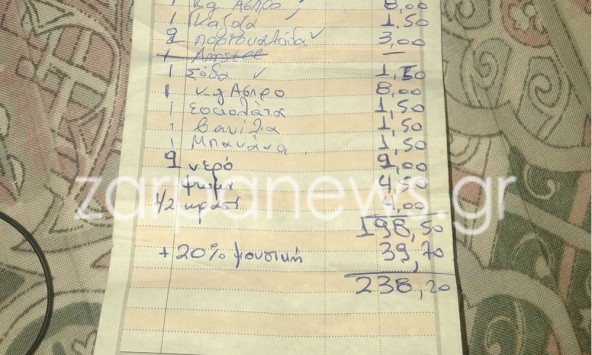 1 κg Ασπρο ✓ 8,00
1 1,50
2 πορτοκαλάδα ✓ 3,00
1 —
1 Σόδα ✓ 1,50
1 κg Ασπρο 8,00
1 Σοκολάτα 1,50
1 Βανίλια 1,50
1 Μπανάνα 1,50
9 νερό 9,00
ψωμι 4,50
1/2 κρασί 4,00
zarpanews.gr
198,50
+ 20% μουσική 39,70
238,20